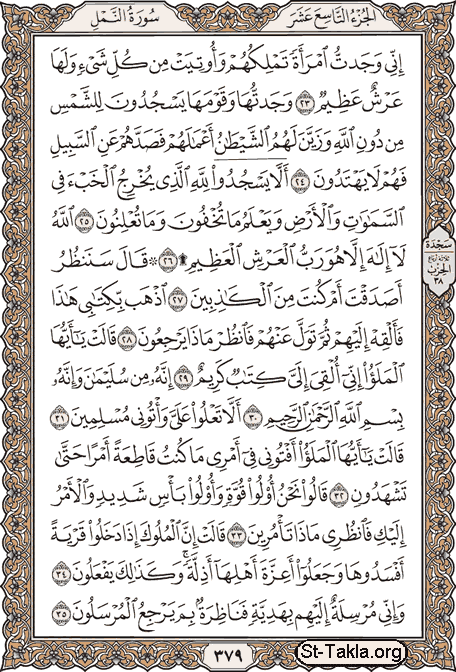 الجزء التاسع عشر
سورة النمل
إِنِّي وَجَدتُّ ٱمْرَأَةً تَمْلِكُهُمْ وَأُوتِيَتْ مِن كُلِّ شَىْءٍ وَلَهَا
عَرْشٌ عَظِيمٌ ٢٣ وَجَدتُّهَا وَقَوْمَهَا يَسْجُدُونَ لِلشَّمْسِ
مِن دُونِ ٱللَّهِ وَزَيَّنَ لَهُمُ ٱلشَّيْطَٰنُ أَعْمَٰلَهُمْ فَصَدَّهُمْ عَنِ ٱلسَّبِيلِ
فَهُمْ لَا يَهْتَدُونَ ٢٤ أَلَّا يَسْجُدُوا۟ لِلَّهِ ٱلَّذِى يُخْرِجُ ٱلْخَبْءَ فِى
ٱلسَّمَٰوَٰتِ وَٱلْأَرْضِ وَيَعْلَمُ مَا تُخْفُونَ وَمَا تُعْلِنُونَ ٢٥ ٱللَّهُ
لَآ إِلَٰهَ إِلَّا هُوَ رَبُّ ٱلْعَرْشِ ٱلْعَظِيمِ ۩ ٢٦ ۞ قَالَ سَنَنظُرُ
أَصَدَقْتَ أَمْ كُنتَ مِنَ ٱلْكَٰذِبِينَ ٢٧ ٱذْهَب بِّكِتَٰبِى هَٰذَا
فَأَلْقِهْ إِلَيْهِمْ ثُمَّ تَوَلَّ عَنْهُمْ فَٱنظُرْ مَاذَا يَرْجِعُونَ ٢٨ قَالَتْ يَٰٓأَيُّهَا
ٱلْمَلَؤُا۟ إِنِّىٓ أُلْقِىَ إِلَىَّ كِتَٰبٌ كَرِيمٌ ٢٩ إِنَّهُۥ مِن سُلَيْمَٰنَ وَإِنَّهُۥ
بِسْمِ ٱللَّهِ ٱلرَّحْمَٰنِ ٱلرَّحِيمِ ٣٠ أَلَّا تَعْلُوا۟ عَلَىَّ وَأْتُونِى مُسْلِمِينَ ٣١
قَالَتْ يَٰٓأَيُّهَا ٱلْمَلَؤُا۟ أَفْتُونِى فِىٓ أَمْرِى مَا كُنتُ قَاطِعَةً أَمْرًا حَتَّىٰ
تَشْهَدُونِ ٣٢ قَالُوا۟ نَحْنُ أُو۟لُوا۟ قُوَّةٍ وَأُو۟لُوا۟ بَأْسٍ شَدِيدٍ وَٱلْأَمْرُ
إِلَيْكِ فَٱنظُرِى مَاذَا تَأْمُرِينَ ٣٣ قَالَتْ إِنَّ ٱلْمُلُوكَ إِذَا دَخَلُوا۟ قَرْيَةً
أَفْسَدُوهَا وَجَعَلُوٓا۟ أَعِزَّةَ أَهْلِهَآ أَذِلَّةً ۖ وَكَذَٰلِكَ يَفْعَلُونَ ٣٤
وَإِنِّى مُرْسِلَةٌ إِلَيْهِم بِهَدِيَّةٍ فَنَاظِرَةٌۢ بِمَ يَرْجِعُ ٱلْمُرْسَلُونَ ٣٥
سجدة
ثلاثة أرباع
الحزب
٣٨
٣٧٩
St-Takla.org